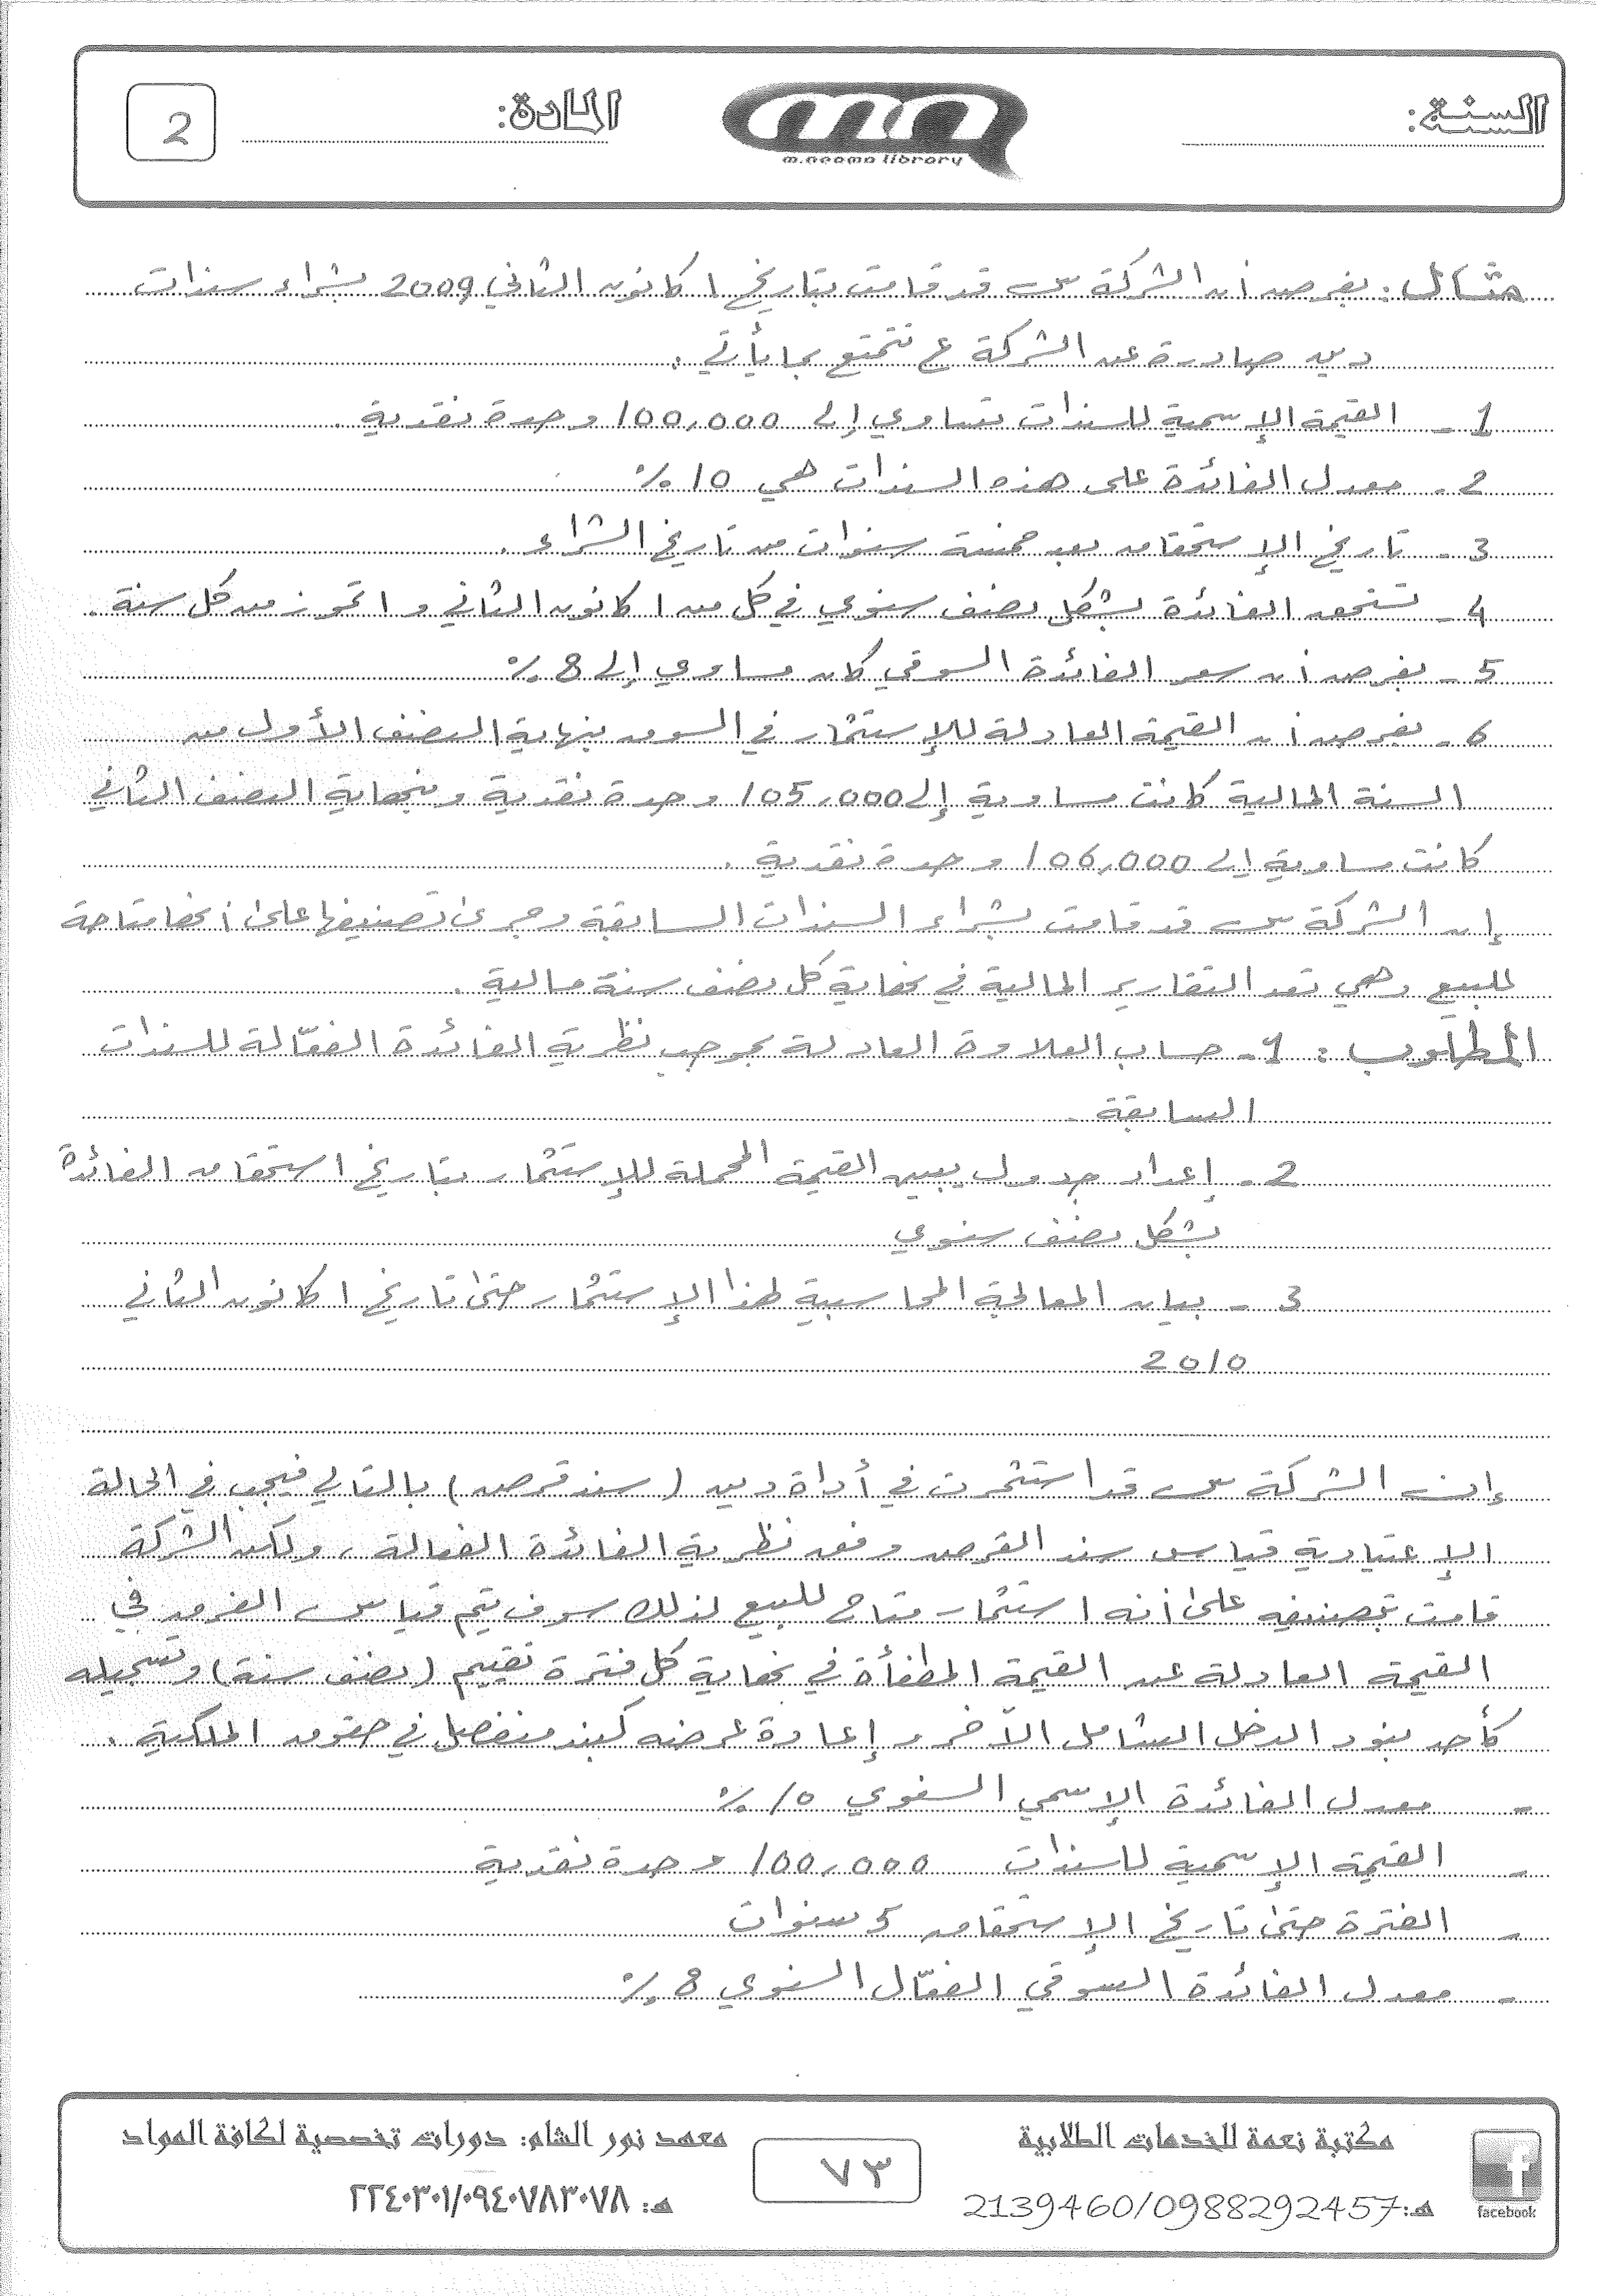 السنة:
m.neama library
المادة:
2
مثال: بفرض أن الشركة س قد قامت بتاريخ 1 كانون الثاني 2009 بشراء سندات
دين صادرة عن الشركة ع تتمتع بما يأتي:
1- القيمة الإسمية للسندات تساوي إلى 100,000 وحدة نقدية.
2- معدل الفائدة على هذه السندات هي 10%
3- تاريخ الإستحقاق بعد خمسة سنوات من تاريخ الشراء.
4- تستحق الفائدة بشكل نصف سنوي في كل من 1 كانون الثاني و 1 تموز من كل سنة.
5- بفرض أن سعر الفائدة السوقي كان مساوي إلى 8%
6- بفرض أن القيمة العادلة للإستثمار في السوق بنهاية النصف الأول من
السنة المالية كانت مساوية إلى 105,000 وحدة نقدية وبنهاية النصف الثاني
كانت مساوية إلى 106,000 وحدة نقدية.
إن الشركة س قد قامت بشراء السندات السابقة وجرى تصنيفها على أنها متاحة
للبيع وهي تعد التقارير المالية في نهاية كل نصف سنة مالية.
المطلوب: 1- حساب العلاوة العادلة بموجب نظرية الفائدة الفعّالة للسندات
السابقة.
2- إعداد جدول يبين القيمة المحملة للإستثمار بتاريخ استحقاق الفائدة
بشكل نصف سنوي
3- بيان المعالجة المحاسبية لهذا الإستثمار حتى تاريخ 1 كانون الثاني
2010
إن الشركة س قد استثمرت في أداة دين (سند قرض) بالتالي فيجب في الحالة
الإعتيادية قياس سند القرض وفق نظرية الفائدة الفعالة، ولكن الشركة
قامت بتصنيفه على أنه استثمار متاح للبيع لذلك سوف يتم قياس الفروق في
القيمة العادلة عن القيمة المطفأة في نهاية كل فترة تقييم (نصف سنة) وتسجيله
كأحد بنود الدخل الشامل الآخر وإعادة عرضه كبند منفصل في حقوق الملكية.
- معدل الفائدة الإسمي السنوي 10%
- القيمة الإسمية للسندات 100,000 وحدة نقدية
- الفترة حتى تاريخ الإستحقاق 5 سنوات
- معدل الفائدة السوقي الفعّال السنوي 8%
facebook
مكتبة نعمة للخدمات الطلابية
هـ: 2139460/0988292457
٧٣
معهد نور الشام: دورات تخصصية لكافة المواد
هـ: ٢٢٤٠٣٠١/٠٩٤٠٧٨٣٠٧٨